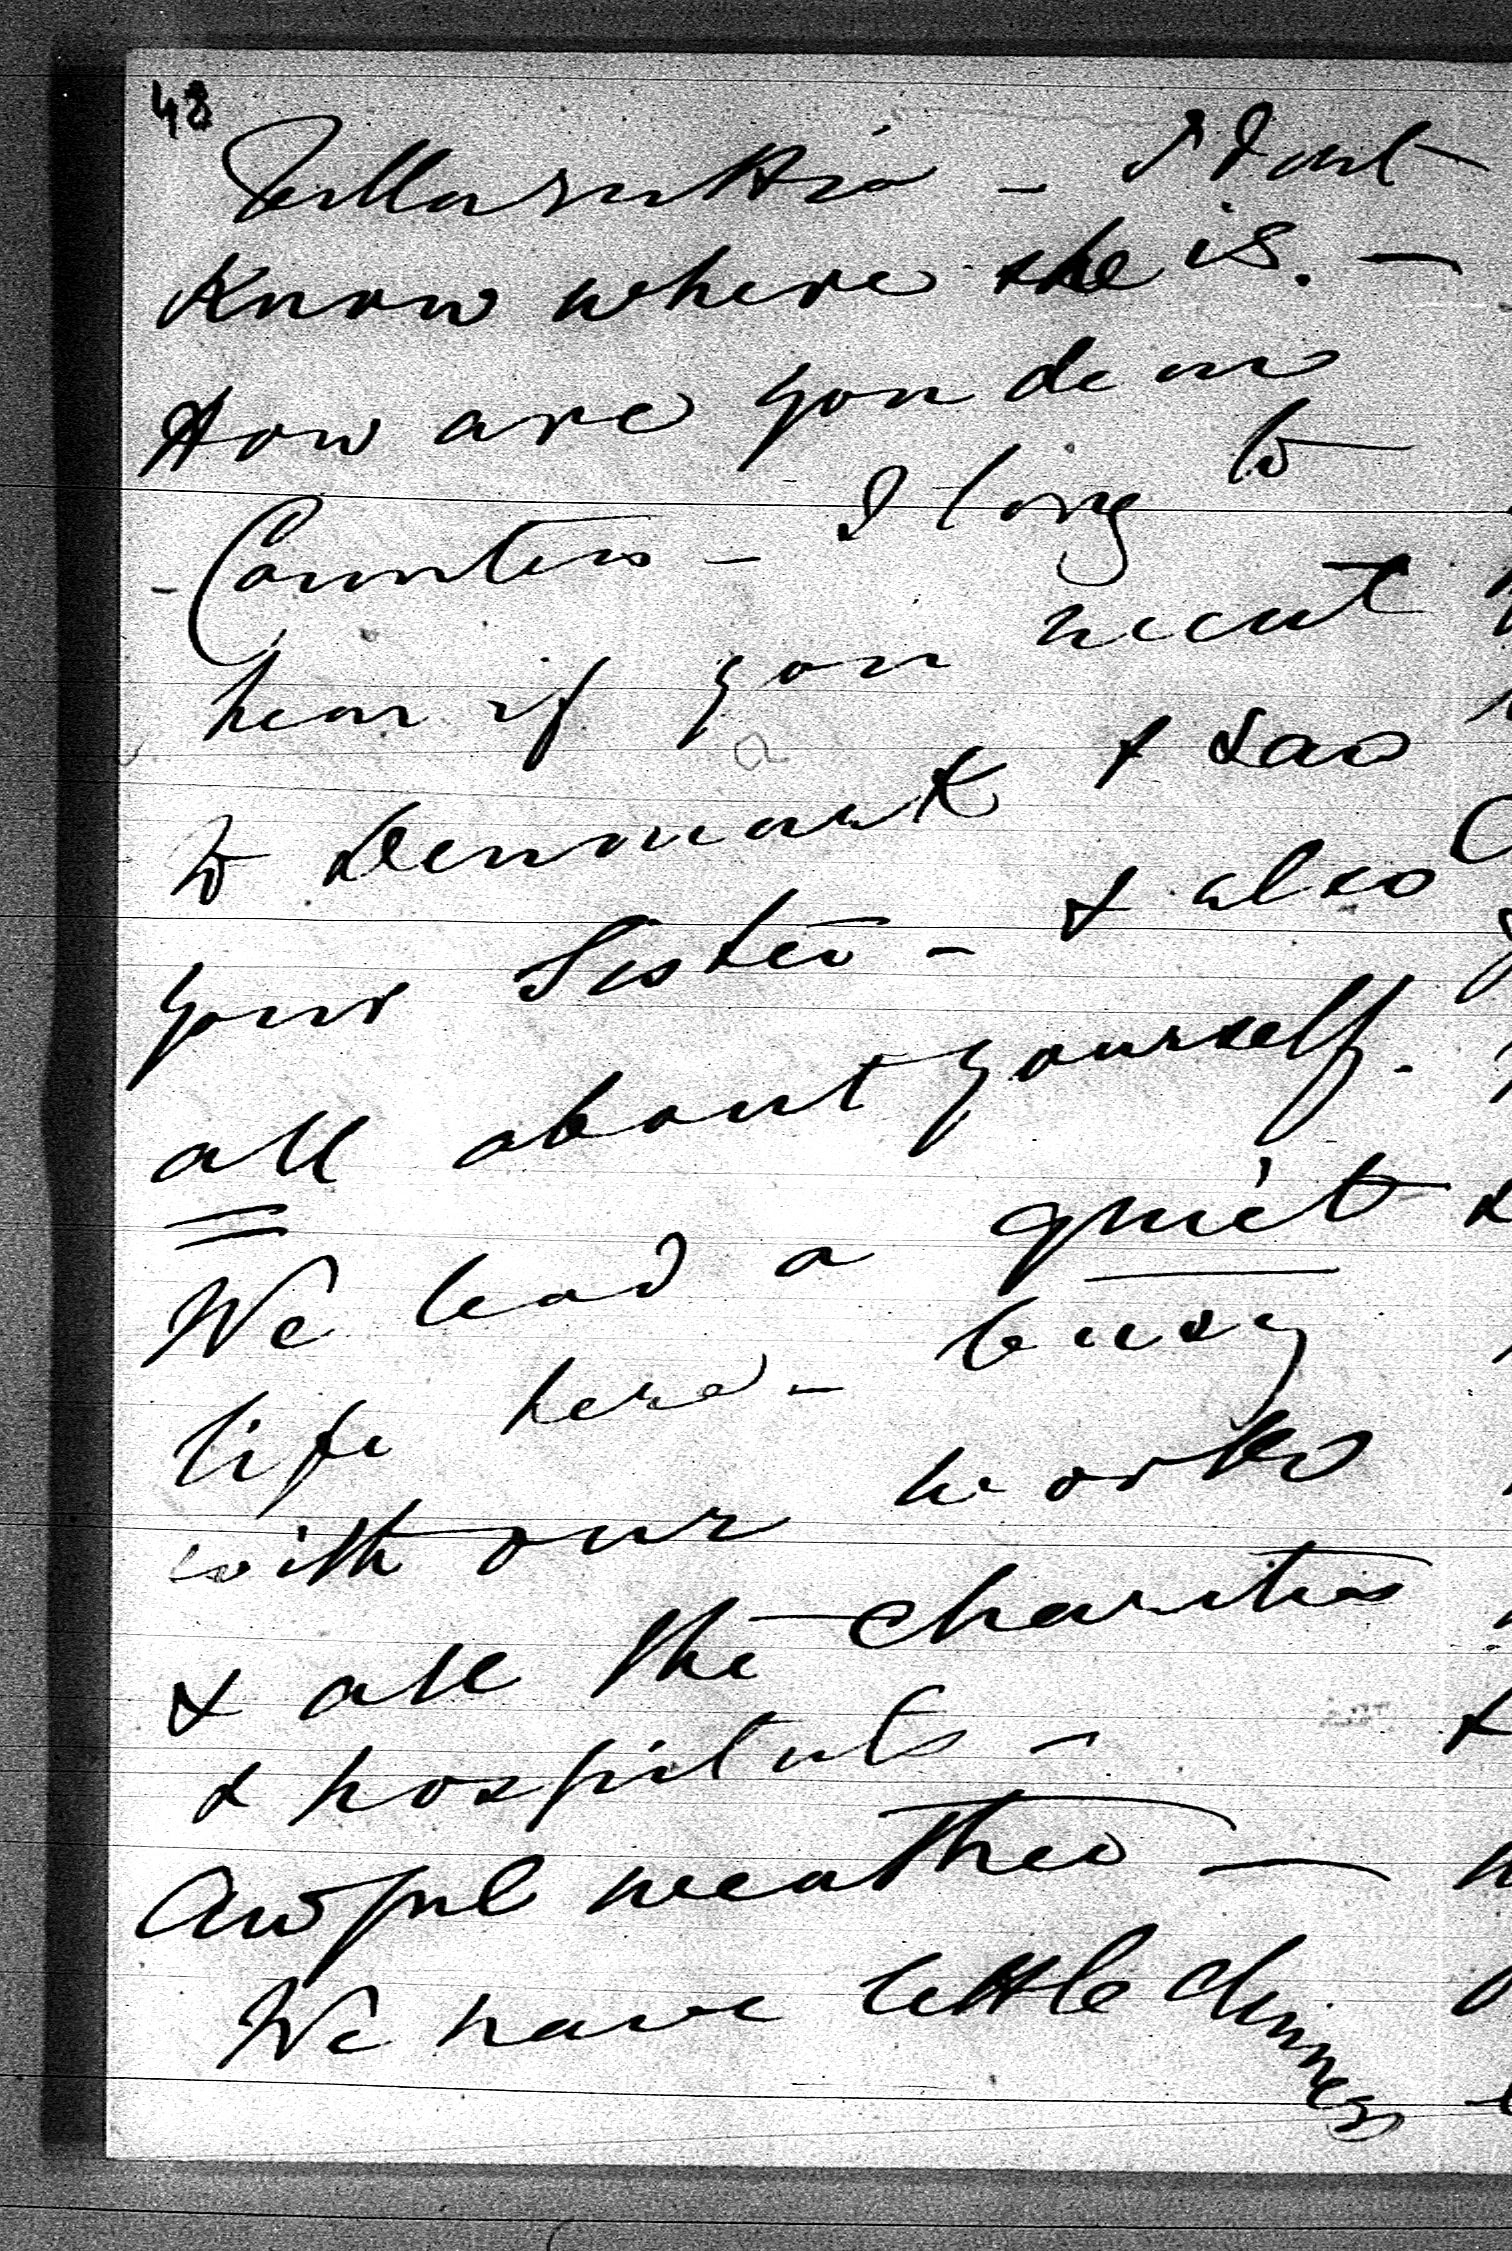 48
I dont
know where she is. —
How are you dear
- Countess - I long to
hear if you went
to Denmark & saw
your Sister - & also
all about yourself.
We lead a quiet
life here - busy
with our works
& all the charities
& hospitals -
Awful weather —
We have little dinners